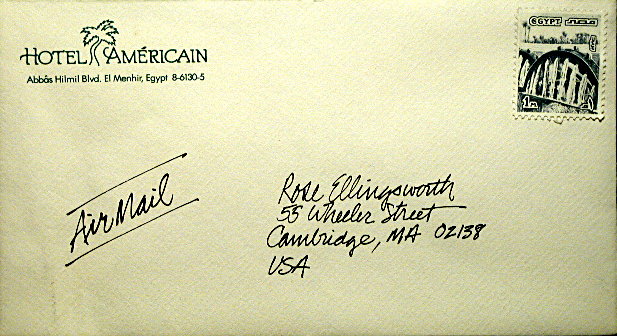 HOTEL AMÉRICAIN
Abbâs Hilmil Blvd. El Menhir, Egypt 8-6130-5
EGYPT مصر
1m
Air Mail
Rose Ellingsworth
55 Wheeler Street
Cambridge, MA 02138
USA